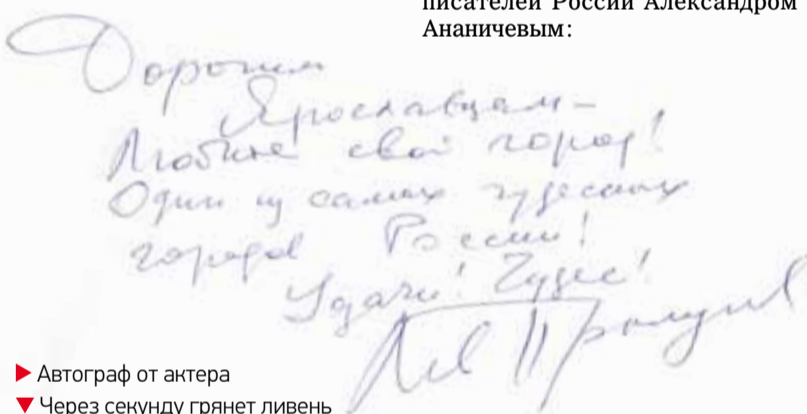 писателей России Александром
Ананичевым:
Дорогим
Ярославцам-
Любите свой город!
Один из самых чудесных
городов России!
Удачи! Чудес!
Лев Прыгунов
Автограф от актера
Через секунду грянет ливень